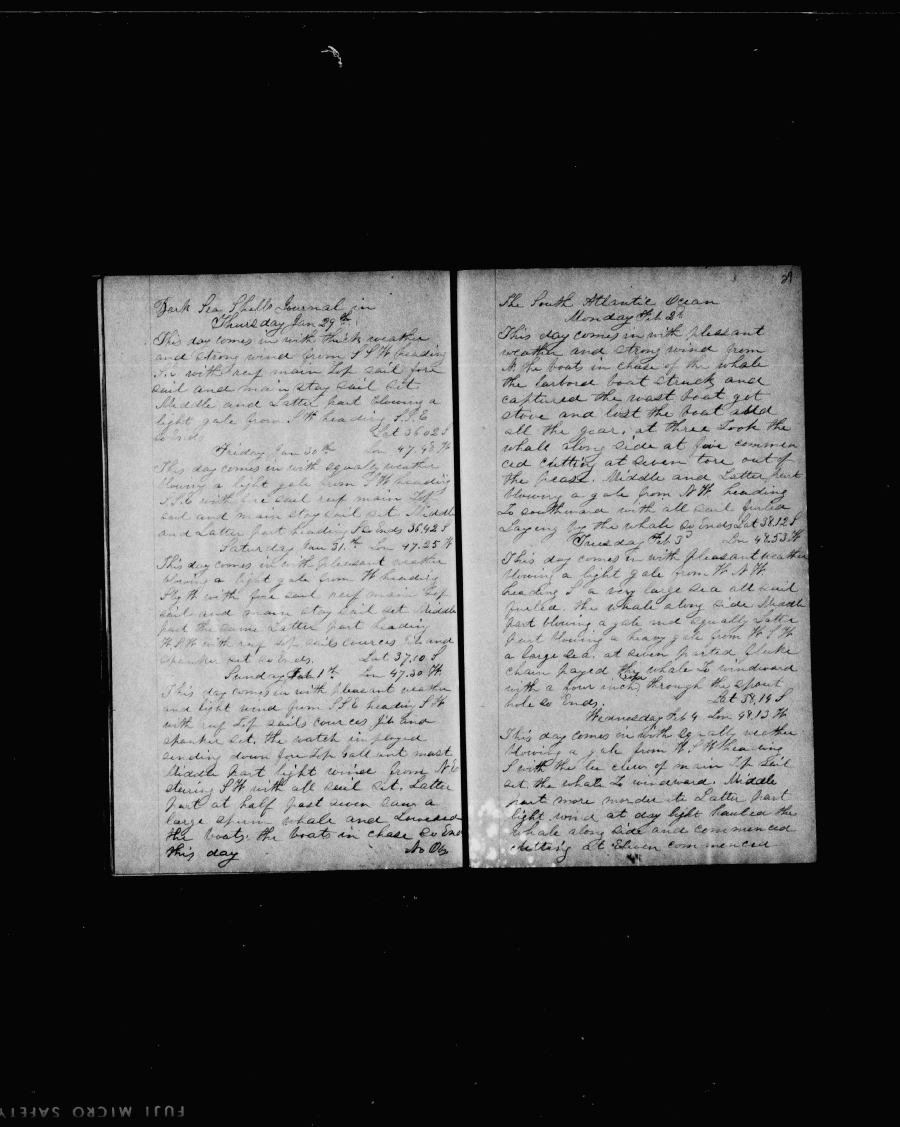 Bark Sea Shells Journal in
Thursday Jan 29th
This day comes in with thick weather
and strong wind from S S W heading
S.E with reef main Top sail fore
sail and main stay sail set
Middle and Latter part blowing a
light gale from S W heading S.S.E
so Ends Lat 36.02 S
Friday Jan 30th Lon 47.48 W
This day comes in with squaly weather
blowing a light gale from S W heading
S.S.E with fore sail reef main Top
sail and main stay sail set Middle
and Latter part heading S so Ends 36.42 S
Saturday Jan 31.th Lon 47.25 W
This day comes in with pleasent weather
blowing a light gale from W heading
S by W with fore sail reef main Top
sail and main stay sail set Middle
part the same Latter part heading
W.S.W with reef top sails cources jib and
spanker set so Ends. Lat 37.10 S
Sunday Feb 1th Lon 47.30 W.
This day comes in with pleasent weather
and light wind from S.S.E heading S W
with reef Top sails cources jib and
spanker set. the watch imployed
sending down fore Top gallant mast
Middle part light wind from N E
stering S W with all sail set. Latter
part at half past seven saw a
large spurm whale and Lowered
the boats. the boats in chase so End
this day No Obs
29
The South Atlantic Ocean
Monday Feb 2d
This day comes in with pleasant
weather and strong wind from
N. the boats in chase of the whale
the larbord boat struck and
captured the wast boat got
stove and lost the boat and
all the gear. at three took the
whale along side at five commen
ced cutting at seven tore out of
the Middle and Latter part
blowing a gale from N W heading
To southward with all sail furled
Laying by the whale so Ends Lat 38.12 S
Tuesday Feb 3d Lon 49.53 W
This day comes in with pleasant weather
blowing a light gale from W N W.
heading S a very large sea all sail
furled. the whale along side Middle
part blowing a gale and squally Latter
part blowing a heavy gale from W S W
a large sea. at seven parted fluke
chain payed the whale To windward
with a four inch rope through the spout
hole so Ends. Lat 38.14 S
Wednesday Feb 4 Lon 49.13 W
This day comes in with squally weather
blowing a gale from W.S W heading
S with the lee clew of main Top Sail
set the whale To windward. Middle
part more morderate Latter part
light wind at day light hauled the
whale along side and commenced
cutting at Eleven commenced
FUJI MICRO SAFETY